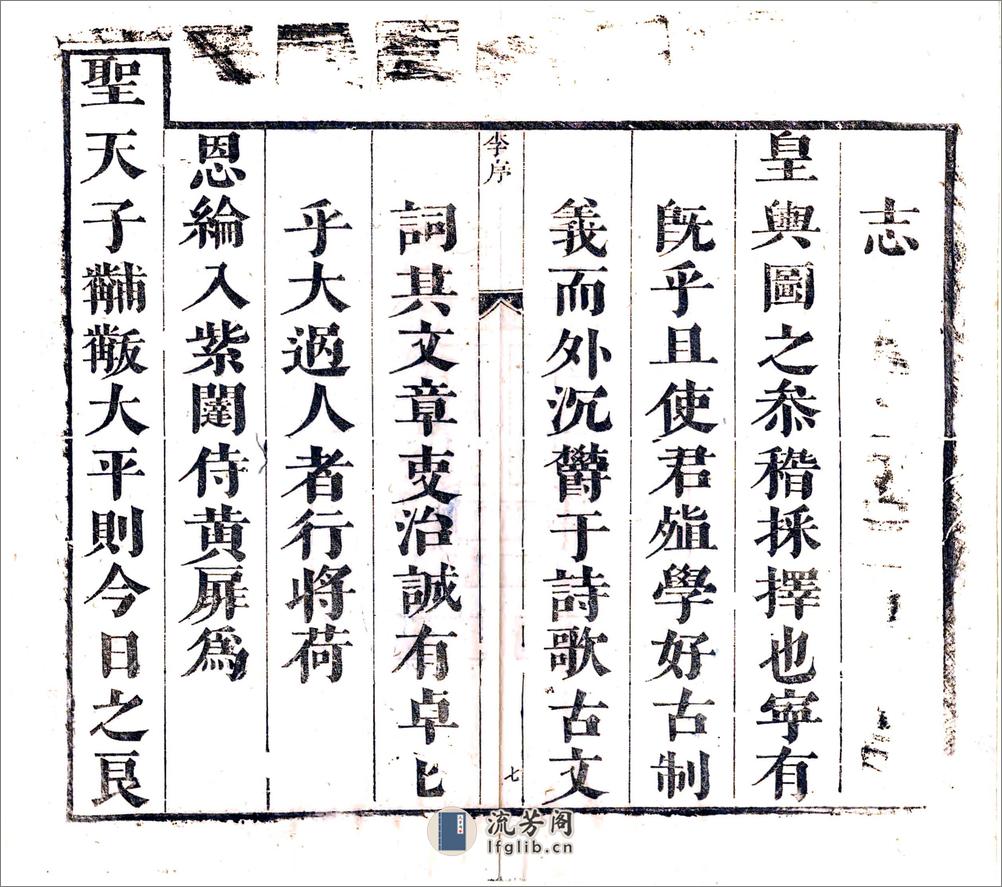 志
皇輿圖之叅稽採擇也寜有
旣乎且使君殖學好古制
義而外沉欝于詩歌古文
李序
七
詞其文章吏治誠有卓匕
乎大過人者行將荷
恩綸入紫闥侍黄扉爲
聖天子黼黻大平則今日之良
流芳阁
lfglib.cn